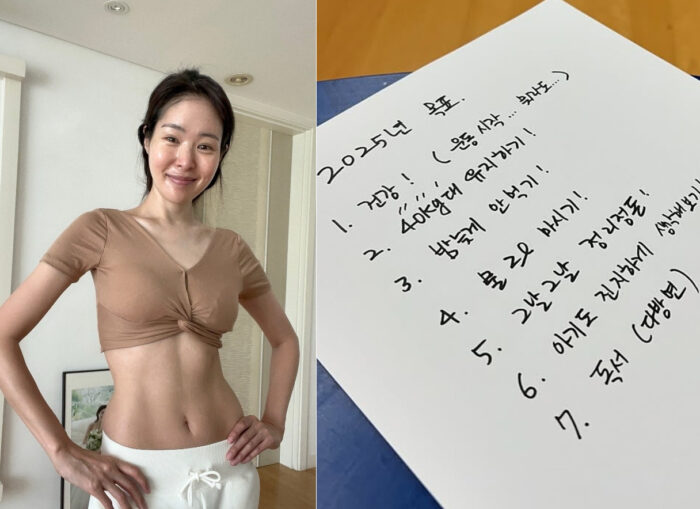 2025년 목표.
1. 건강! (운동 시작... ...)
2. 40kg대 유지하기!
3. 밤늦게 안먹기!
4. 물 2l 마시기!
5. 그날그날 정리정돈!
6. 아기도 진지하게 생각해보기!
7. 독서 (다방면)